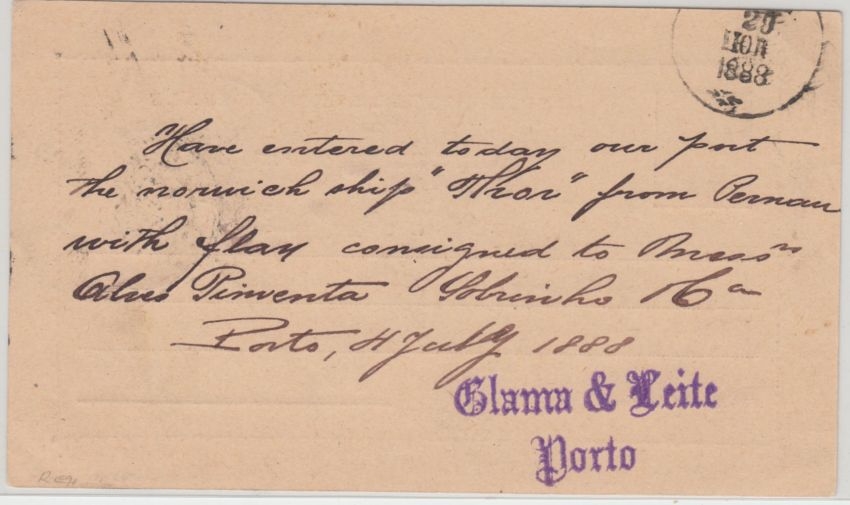 20
ІЮЛ
1888
Have entered today our port
the norwich ship "Thor" from Pernau
with flax consigned to Mess rs
Alves Pimenta Sobrinho & Ca
Porto, 4 July 1888
Glama & Leite
Porto